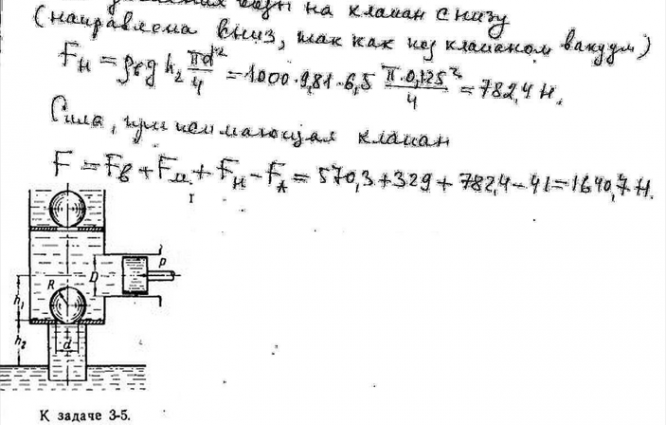 давления воды на клапан снизу
(направлена вниз, так как под клапаном вакуум)
Fн = ρвg h₂ πd²/4 = 1000·9,81·6,5 π·0,125²/4 = 782,4 Н.
Сила, прижимающая клапан
F = Fв + Fш + Fн − FА = 570,3+329+782,4−41=1640,7 Н.
D
p
R
h₁
h₂
d
К задаче 3-5.